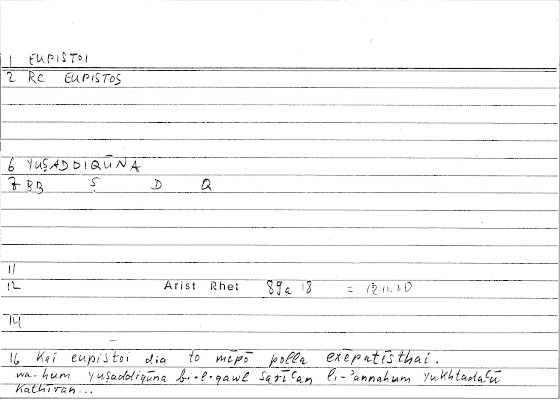 1 EUPISTOI
2 RC EUPISTOS
6 YUṢADDIQŪNA
7 BB Ṣ D Q
11
12 Arist Rhet 89a 18 =
14
16 Kai eupistoi dia to mēpō polla exēpatēsthai.
wa-hum yuṣaddiqūna bi-l-qawl sarīʿan li-ʾannahum yukhtadaʿū
kathīran...